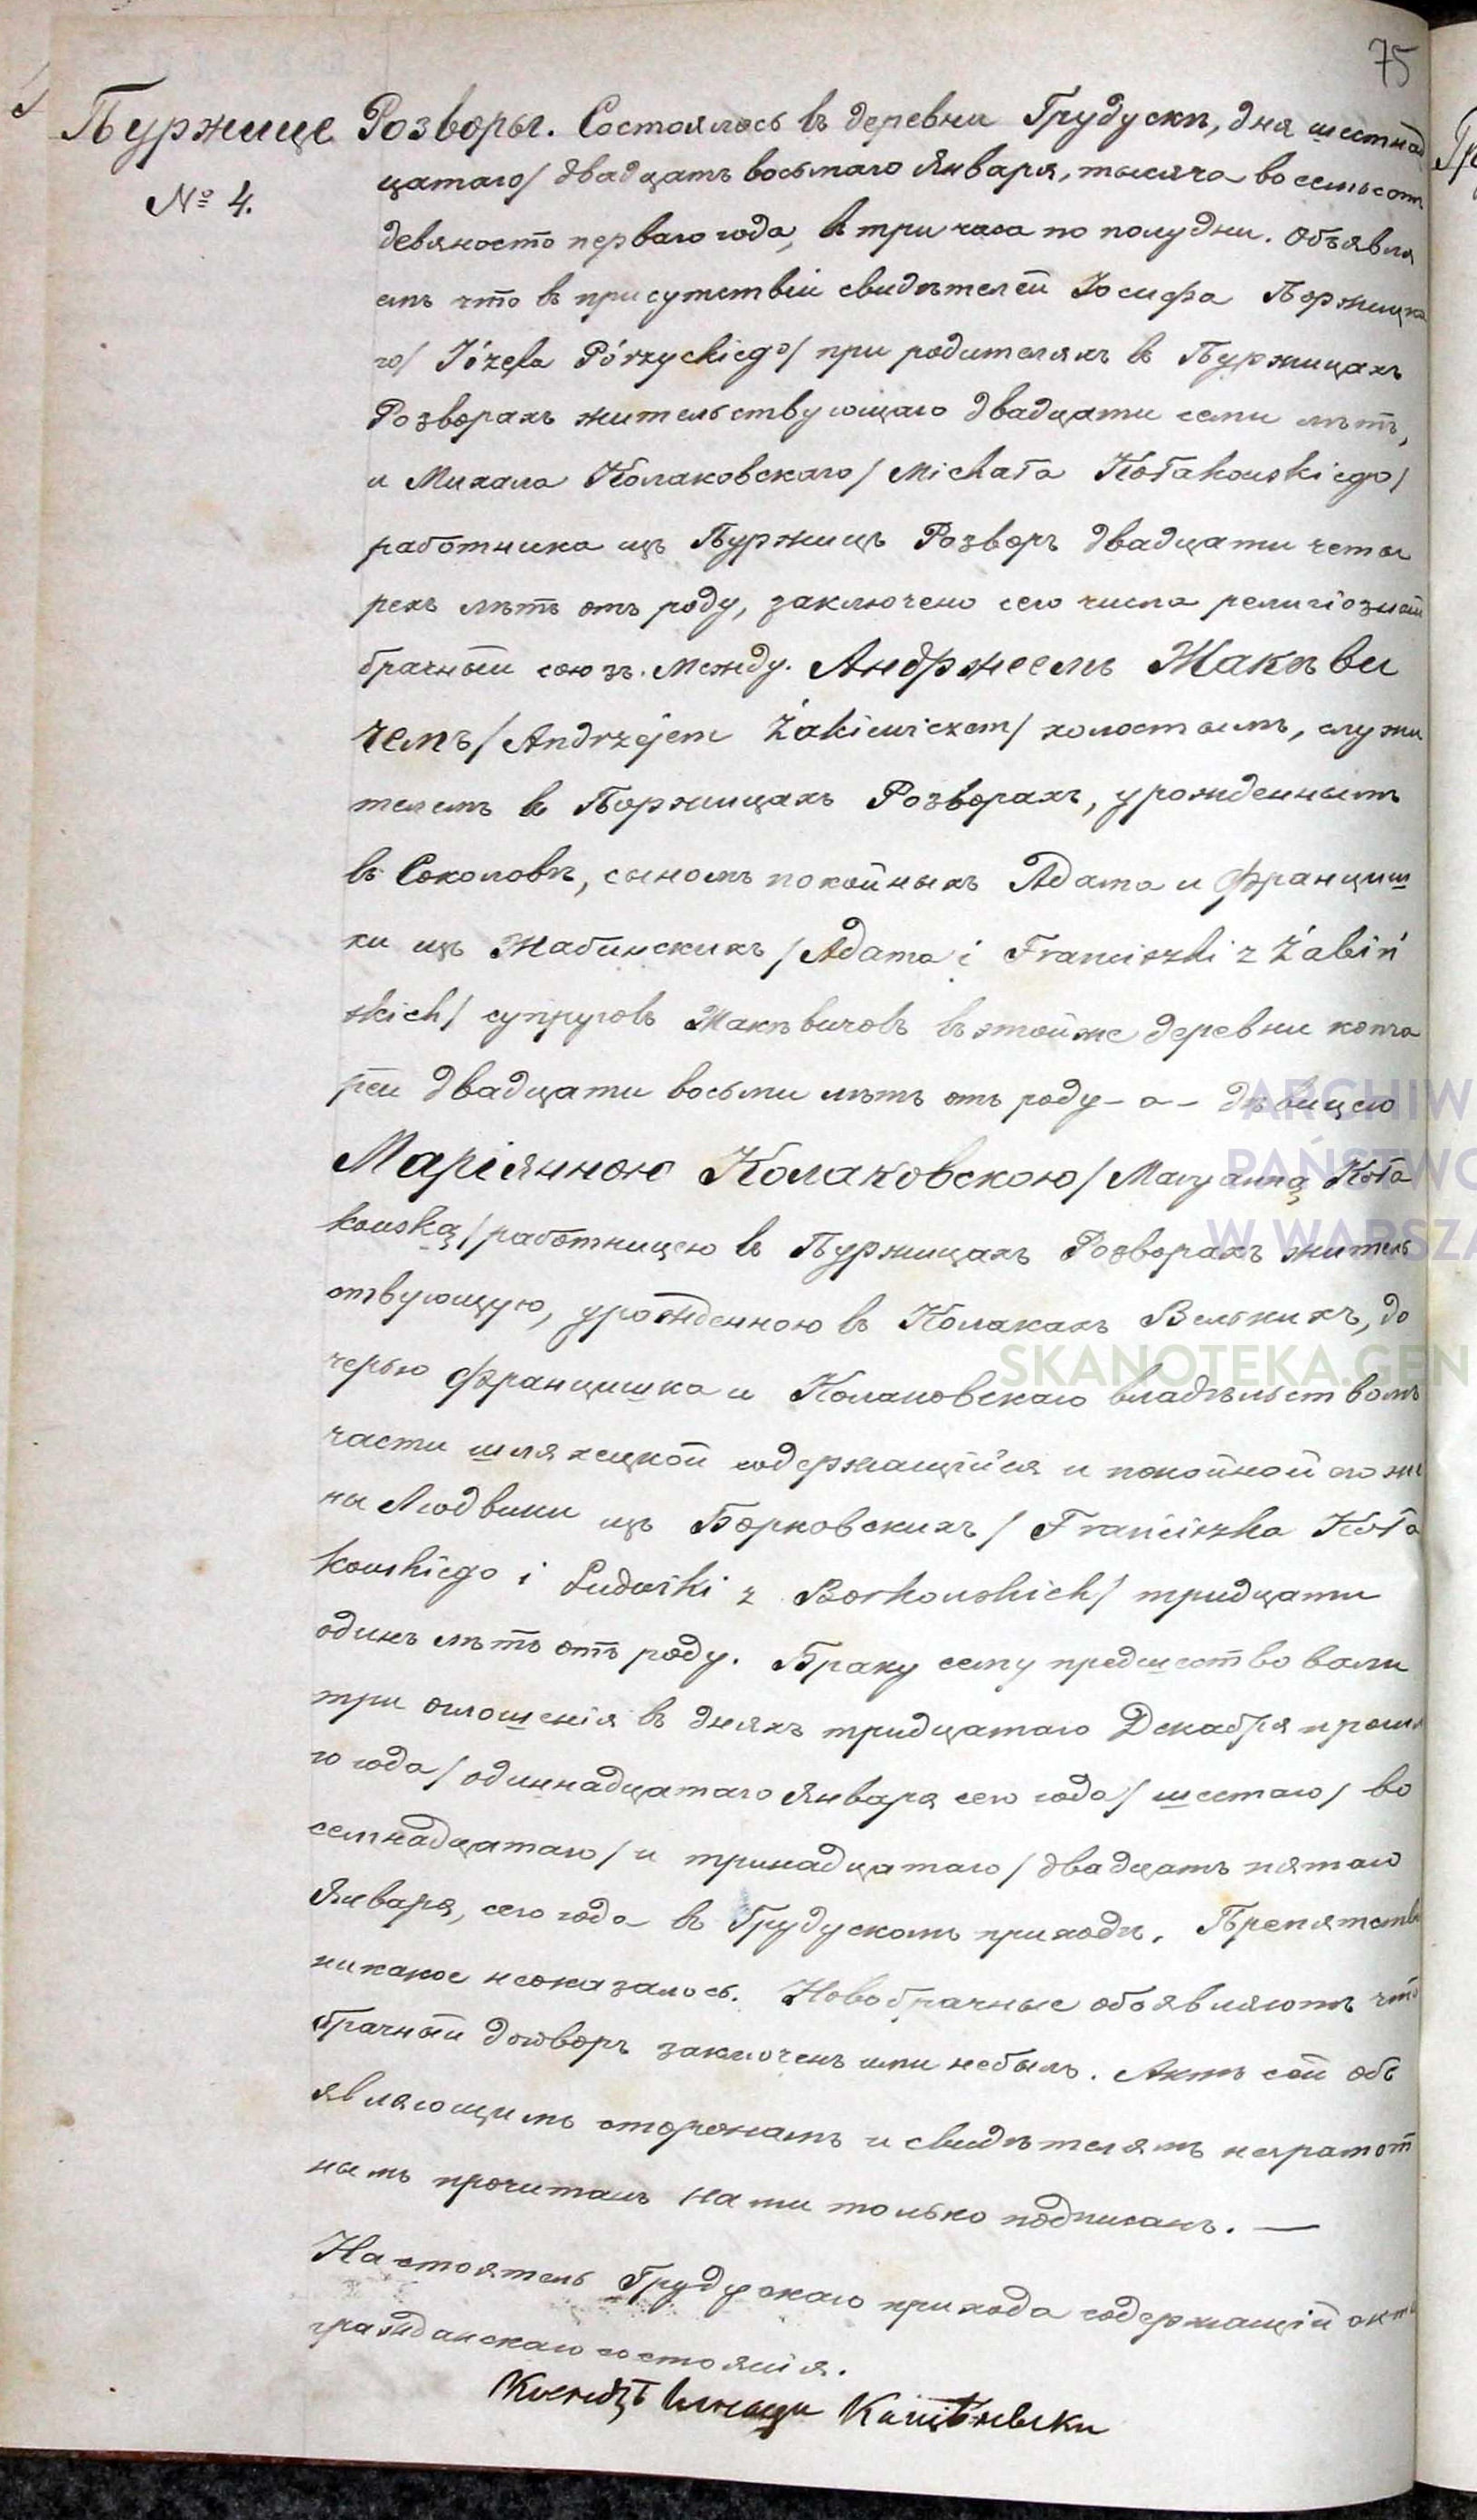 75
Пуржице Розворы. Состоялось въ деревни Грудускъ, дня шестнад
№ 4.
цатаго/ двадцать восьмаго Января, тысяча восемьсотъ
девяносто перваго года, в три часа по полудни. Объявля
емъ что в присутствіи свидѣтелей Іосифа Поржицка
го/ Józefa Pórzyckiego/ при родителяхъ в Пуржицахъ
Розворахъ жительствующаго двадцати семи лѣтъ,
и Михала Колаковскаго/ Michała Kołakowskiego/
работника изъ Пуржицъ Розворъ двадцати четы
рехъ лѣтъ отъ роду, заключено сего числа религіозный
брачный союзъ. Между. Анджеемъ Жакѣви
чемъ/ Andrzejem Żakiewiczem/ холостымъ, служи
телемъ в Поржицахъ Розворахъ, урожденнымъ
въ Соколовѣ, сыномъ покойныхъ Адама и Францишъ
ки изъ Жабинскихъ/ Adama i Franciszki z Żabiń
skich/ супруговъ Жакѣвичовъ въ тойже деревни кото
рей двадцати восьми лѣтъ отъ роду - а - дѣвицею
Маріянною Колаковскою/ Maryanną Koła
kowską/ работницею в Пуржицахъ Розворахъ житель
ствующую, урожденною въ Колакахъ Велькихъ, до
черью Францишка и Колаковскаго владѣльствомъ
части шляхецкой содержащійся и покойной его же
на Людвики изъ Борковскихъ/ Franciszka Koła
kowskiego i Ludwiki z Borkowskich/ тридцати
одинъ лѣтъ отъ роду. Браку сему предшествовали
три оглошенія в дняхъ тридцатаго Декабря прошл
го года/ одиннадцатаго Января сего года/ шестаго/ во
семнадцатаго/ и тринадцатаго/ двадцать пятаго
Января, сего года в Грудускомъ приходѣ. Препятстві
никакое неоказалось. Новобрачные обоявляютъ что
брачный договоръ заключенъ ими небылъ. Актъ сей объ
являющимъ сторонамъ и свидѣтелямъ неграмот
нымъ прочитанъ нами только подписанъ. —
Настоятель Грудускаго прихода содержащій акты
гражданскаго состоянія.
Ксендзъ
ARCHIW
PAŃSTWO
W WARSZA
SKANOTEKA.GEN